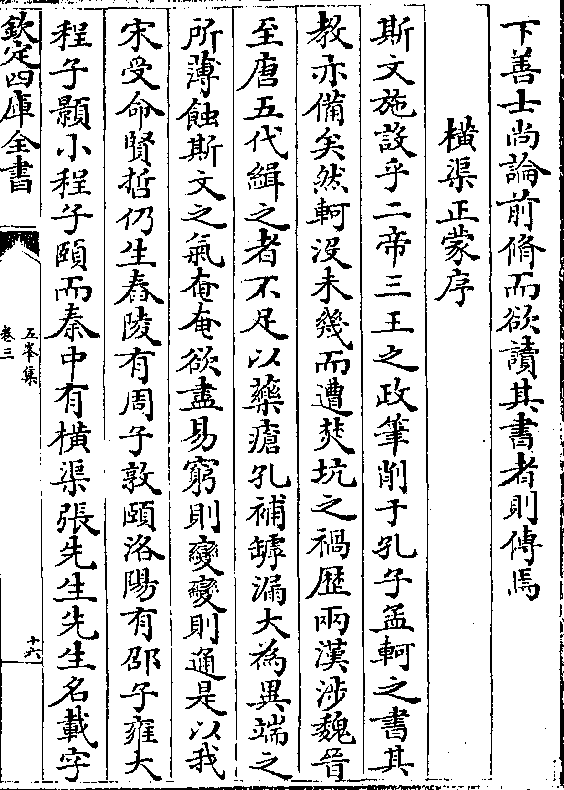 下善士尚論前脩而欲讀其書者則傳焉
橫渠正蒙序
斯文施設乎二帝三王之政筆削于孔子孟軻之書其
教亦備矣然軻沒未幾而遭焚坑之禍歷兩漢涉魏晉
至唐五代緝之者不足以藥瘡孔補罅漏大為異端之
所薄蝕斯文之氣奄奄欲盡易窮則變變則通是以我
宋受命賢哲仍生舂陵有周子敦頤洛陽有邵子雍大
程子顥小程子頤而秦中有橫渠張先生先生名載字
欽定四庫全書
五峯集
卷三
十六